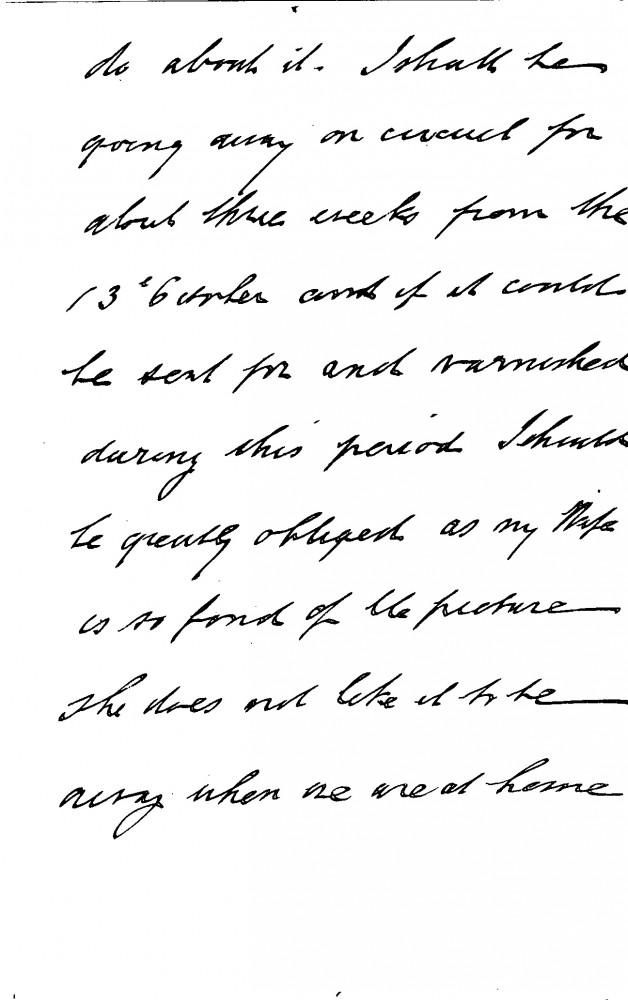 do about it. I shall be
going away on circuit for
about three weeks from the
13t October and if it could
be sent for and varnished
during this period I should
be greatly obliged as my Wife
is so fond of the picture
she does not like it to be
away when we are at home